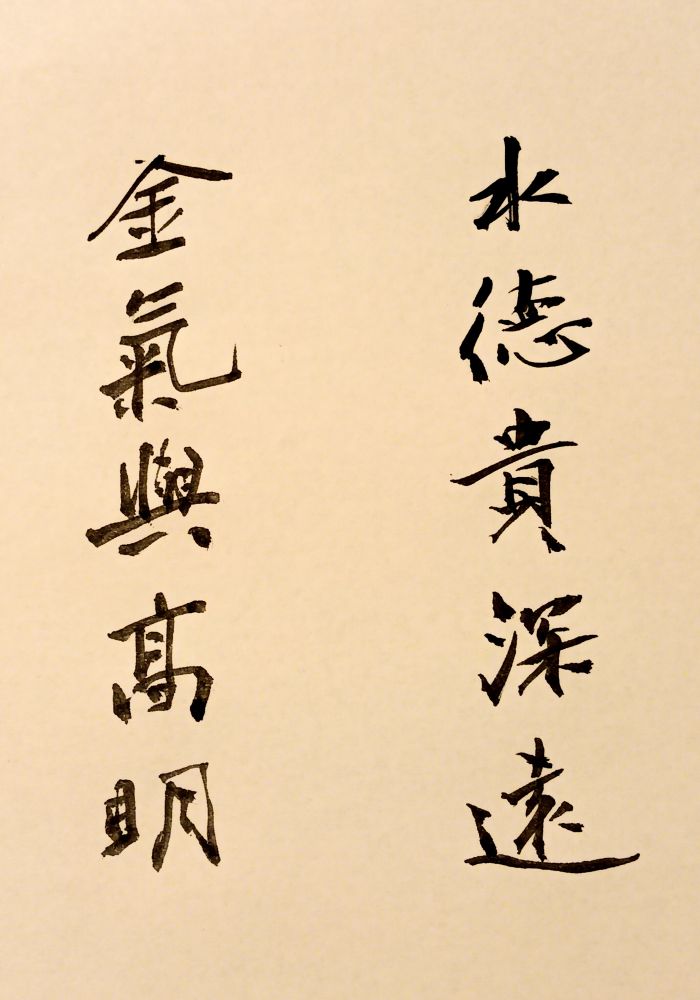 水德貴深遠
金氣與高明